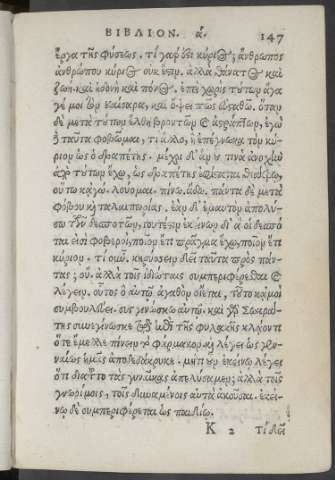 ΒΙΒΛΙΟΝ. ά. 147
ἔργα τῆς φύσεως. τί γάρ ὅδι κύριΘ; ἄνθρωπος
ἀνθρώπου κύριΘ οὐκ ἔςιν. ἀλλὰ θάνατΘ καὶ
ζωὴ. καὶ ἡδονὴ καὶ πόνΘ. ἐπεὶ χωρὶς τούτων ἄγα
γέ μοι τὸν καίσαρα, καὶ ὄψει πῶς εὐσαθῶ. ὅταν
δὲ μετὰ τούτων ἔλθῃ βροντῶν καὶ ἀςράπτων, ἐγὼ
δὲ ταῦτα φοβῶμαι, τί ἄλλο, ἢ ἐπέγνωκα τὸν κύ-
ριον ὡς ὁ δραπέτης. μέχρι δ' ἂν οὗ τινα ἀνοχὴν
ἀπὸ τούτων ἔχω, ὡς δραπέτης ἐφίςαται θεάτρῳ,
οὕτω κᾀγώ. λούομαι. πίνω. ἄδω. πάντα δὲ μετὰ
φόβου κὴ ταλαιπωρίας. ἐὰν δ' ἐμαυτὸν ἀπολύ-
σω τῶν δεσποτῶν, τουτέςιν ἐκείνων δι' ἃ οἱ δεσπό
ται εἰσὶ φοβεροὶ, ποῖον ἔτι πρᾶγμα ἔχω, ποῖον ἔτι
κύριον. τί οὖν. κηρύσσειν δεῖ ταῦτα πρὸς πάν-
τας; οὔ. ἀλλὰ τοῖς ἰδιώταις συμπεριφέρεσθαι καὶ
λέγειν. οὗτος ὃ αὑτῷ ἀγαθὸν οἴεται, τοῦτο κᾀμοὶ
συμβουλεύει. συγγινώσκω αὐτῷ. καὶ γὰρ Σωκρά-
της συνεγίνωσκε τῷ ἐπὶ τῆς φυλακῆς κλάοντι
ὅτε ἔμελλε πίνειν τὸ φάρμακον. κὴ λέγει ὡς γεν-
ναίως ἡμᾶς ἀποδεδάκρυκε. μήτι οὖν ἐκείνῳ λέγει
ὅτι διὰ τοῦτο τὰς γυναῖκας ἀπελύσαμεν; ἀλλὰ τοῖς
γνωρίμοις, τοῖς δυναμένοις αὐτὰ ἀκοῦσαι. ἐκεί-
νῳ δὲ συμπεριφέρεται ὡς παιδίῳ.
K 2 Τί δεῖ